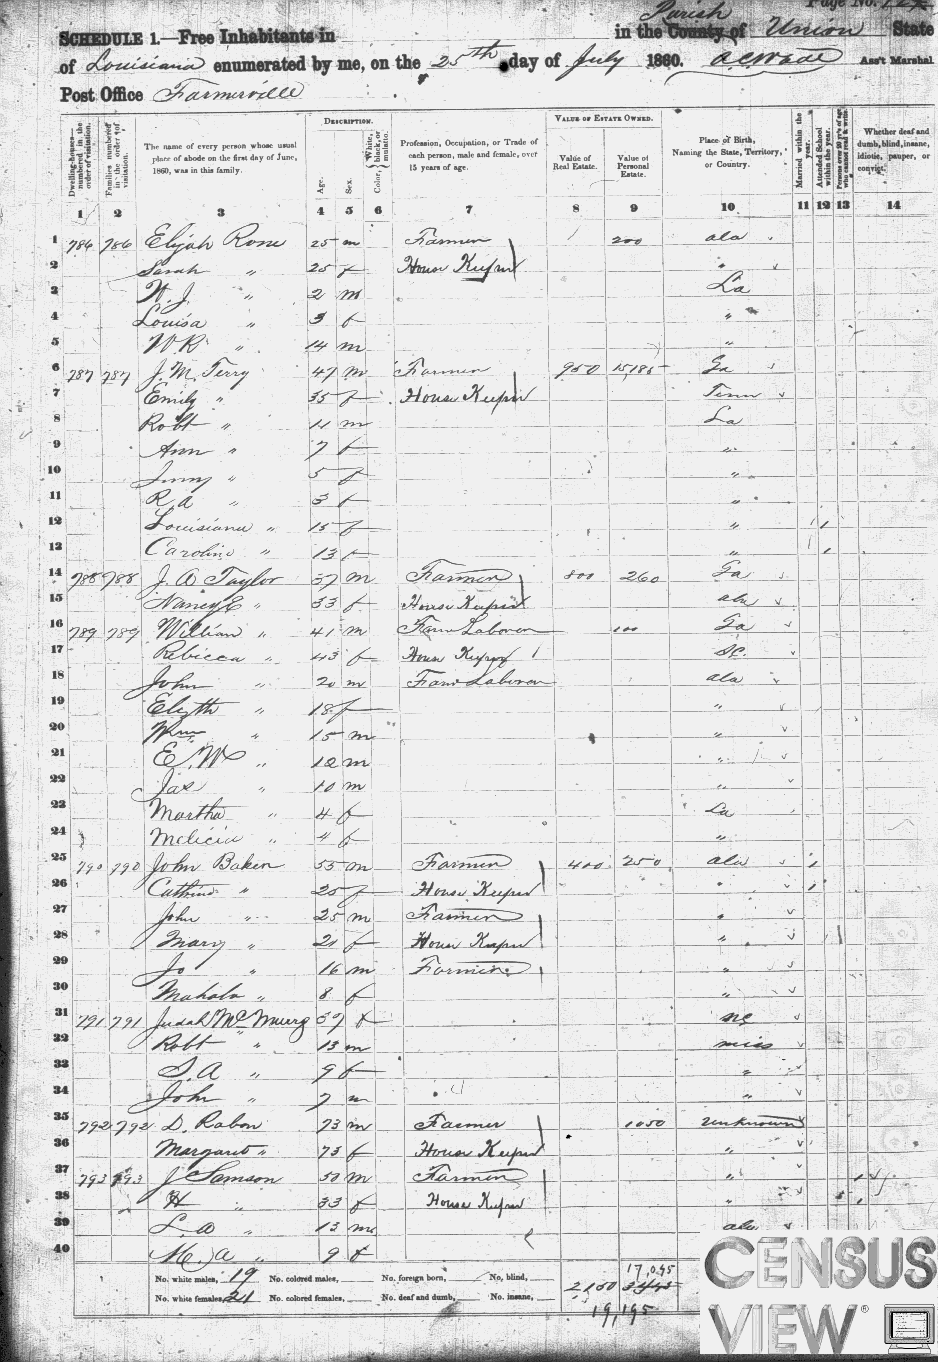 Page No. 124
SCHEDULE 1.—Free Inhabitants in in the County of Parish Union State
of Louisiana enumerated by me, on the 25th day of July 1860. Ass't Marshal
Post Office Farmerville
Dwelling-houses—numbered in the order of visitation. Families numbered in the order of visitation. The name of every person whose usual place of abode on the first day of June, 1860, was in this family. DESCRIPTION. Age. Sex. Color, White, black, or mulatto. Profession, Occupation, or Trade of each person, male and female, over 15 years of age. VALUE OF ESTATE OWNED. Value of Real Estate. Value of Personal Estate. Place of Birth, Naming the State, Territory, or Country. Married within the year. Attended School within the year. Persons over 20 y'rs of age who cannot read & write. Whether deaf and dumb, blind, insane, idiotic, pauper, or convict.
1 2 3 4 5 6 7 8 9 10 11 12 13 14
1 786 786 Elijah 25 m Farmer 200 ala
2 Sarah " 25 f House Keeper "
3 W. J. " 2 m La
4 Louisa " 3 f "
5 W R " 14 m "
6 787 787 J. M. Terry 47 m Farmer 950 15,185 Ga
7 Emily " 35 f House Keeper Tenn
8 Robt " 11 m La
9 Ann " 7 f "
10 " 5 f "
11 R. A " 3 f "
12 Louisiana " 15 f "
13 Caroline " 13 f "
14 788 788 J. A Taylor 37 m Farmer 800 260 Ga
15 Nancy E " 33 f House Keeper ala
16 789 789 William " 41 m Farm Laborer 100 Ga
17 Rebecca " 43 f House Keeper SC.
18 John " 20 m Farm Laborer ala
19 " 18 f "
20 Wm " 15 m "
21 E. W " 12 m "
22 Jas " 10 m "
23 Martha " 4 f La
24 " 4 f "
25 790 790 John Baker 55 m Farmer 400 250 ala
26 " 25 f House Keeper "
27 John " 25 m Farmer "
28 Mary " 21 f House Keeper "
29 Jo " 16 m Farmer "
30 Mahala " 8 f "
31 791 791 Judah 59 f NC
32 Robt " 13 m miss
33 S. A " 9 f "
34 John " 7 m "
35 792 792 D. Rabon 73 m Farmer 1050 unknown
36 Margaret " 75 f House Keeper "
37 793 793 J Samson 50 m Farmer "
38 H " 33 f House Keeper "
39 L. a " 13 m ala
40 M. a " 9 f
No. white males, 19 No. colored males, No. foreign born, No. blind, 17,095
No. white females, 21 No. colored females, No. deaf and dumb, No. insane, 2,150
19,195
CENSUS
VIEW ®